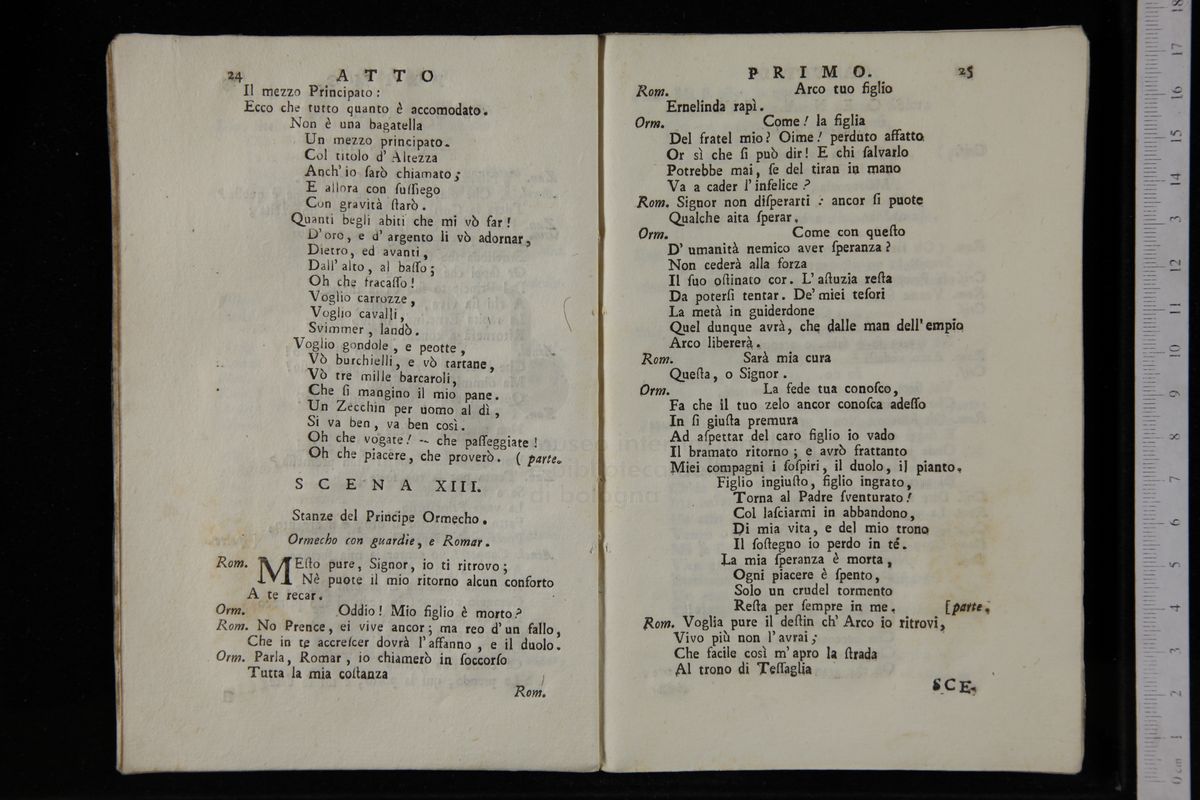 24 ATTO
Il mezzo Principato:
Ecco che tutto quanto è accomodato.
Non è una bagatella
Un mezzo principato.
Col titolo d' Altezza
Anch' io sarò chiamato;
E allora con suſſiego
Con gravità ſtarò.
Quanti begli abiti che mi vò far!
D'oro, e d' argento li vò adornar,
Dietro, ed avanti,
Dall' alto, al baſſo;
Oh che fracaſſo!
Voglio carrozze,
Voglio cavalli,
Svimmer, landò.
Voglio gondole, e peotte,
Vò burchielli, e vò tartane,
Vò tre mille barcaroli,
Che ſi mangino il mio pane.
Un Zecchin per uomo al dì,
Si va ben, va ben così.
Oh che vogate! -- che paſſeggiate!
Oh che piacere, che proverò. ( parte.
SCENA XIII.
Stanze del Principe Ormecho.
Ormecho con guardie, e Romar.
Rom. MEſto pure, Signor, io ti ritrovo;
Nè puote il mio ritorno alcun conforto
A te recar.
Orm. Oddio! Mio figlio è morto?
Rom. No Prence, ei vive ancor; ma reo d'un fallo,
Che in te accreſcer dovrà l'affanno, e il duolo.
Orm. Parla, Romar, io chiamerò in ſoccorſo
Tutta la mia coſtanza
Rom.
PRIMO. 25
Rom. Arco tuo figlio
Ernelinda rapì.
Orm. Come! la figlia
Del fratel mio? Oime! perduto affatto
Or sì che ſi può dir! E chi ſalvarlo
Potrebbe mai, ſe del tiran in mano
Va a cader l'infelice?
Rom. Signor non diſperarti: ancor ſi puote
Qualche aita ſperar.
Orm. Come con queſto
D' umanità nemico aver ſperanza?
Non cederà alla forza
Il ſuo oſtinato cor. L'aſtuzia reſta
Da poterſi tentar. De' miei teſori
La metà in guiderdone
Quel dunque avrà, che dalle man dell'empio
Arco libererà.
Rom. Sarà mia cura
Queſta, o Signor.
Orm. La fede tua conoſco,
Fa che il tuo zelo ancor conoſca adeſſo
In ſi giuſta premura
Ad aſpettar del caro figlio io vado
Il bramato ritorno; e avrò frattanto
Miei compagni i ſoſpiri, il duolo, il pianto.
Figlio ingiuſto, figlio ingrato,
Torna al Padre ſventurato!
Col laſciarmi in abbandono,
Di mia vita, e del mio trono
Il ſoſtegno io perdo in té.
La mia ſperanza è morta,
Ogni piacere è ſpento,
Solo un crudel tormento
Reſta per ſempre in me. [parte.
Rom. Voglia pure il deſtin ch' Arco io ritrovi,
Vivo più non l'avrai;
Che facile così m'apro la ſtrada
Al trono di Teſſaglia
SCE-